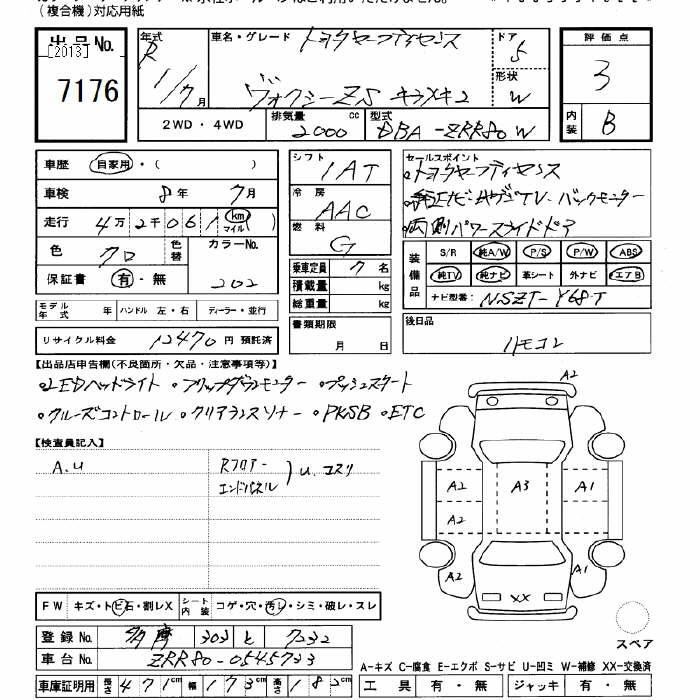 (複合機)対応用紙
出品No.
[2013]
7176
年式 R 1/7月
車名・グレード トヨタセーフティセンス
ヴォクシーZS キラメキ2
ドア 5
形状 W
評価点 3
内装 B
2WD・4WD
排気量 2000 cc
型式 DBA-ZRR80W
車歴 自家用・( )
車検 8年 7月
走行 4万2千061 km (マイル)
色 クロ 色替 カラーNo. 202
保証書 有・無
モデル年式 年 ハンドル 左・右 ディーラー・並行
リサイクル料金 12470円 預託済
シフト IAT
冷房 AAC
燃料 G
乗車定員 7名
積載量 kg
総重量 kg
書類期限 月 日
セールスポイント
・トヨタセーフティセンス
・純正ナビ・フルセグTV・バックモニター
・両側パワースライドドア
装備品
S/R 純A/W P/S P/W ABS
純TV 純ナビ 革シート 外ナビ エアB
ナビ型番: NSZT-Y68T
後日品
リモコン
【出品店申告欄(不良箇所・欠品・注意事項等)】
・LEDヘッドライト ・フリップダウンモニター ・プッシュスタート
・クルーズコントロール ・クリアランスソナー ・PKSB ・ETC
【検査員記入】
A.U
Rフロアー
エンドパネル ) U.コスリ
A2
A2 A3 A1
A2
A2 XX A1
スペア
FW キズ・トビ石・割レX シート内装 コゲ・穴・汚レ・シミ・破レ・スレ
登録No. 多摩 303 と 7232
車台No. ZRR80-0545733
車庫証明用 長さ 471cm 幅 173cm 高さ 182cm
A-キズ C-腐食 E-エクボ S-サビ U-凹ミ W-補修 XX-交換済
工具 有・無 ジャッキ 有・無